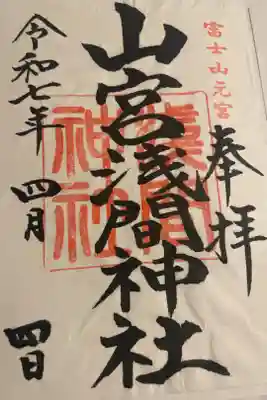 富士山元宮
奉拝
山宮浅間神社
淺間
神社
令和七年
四月
四日